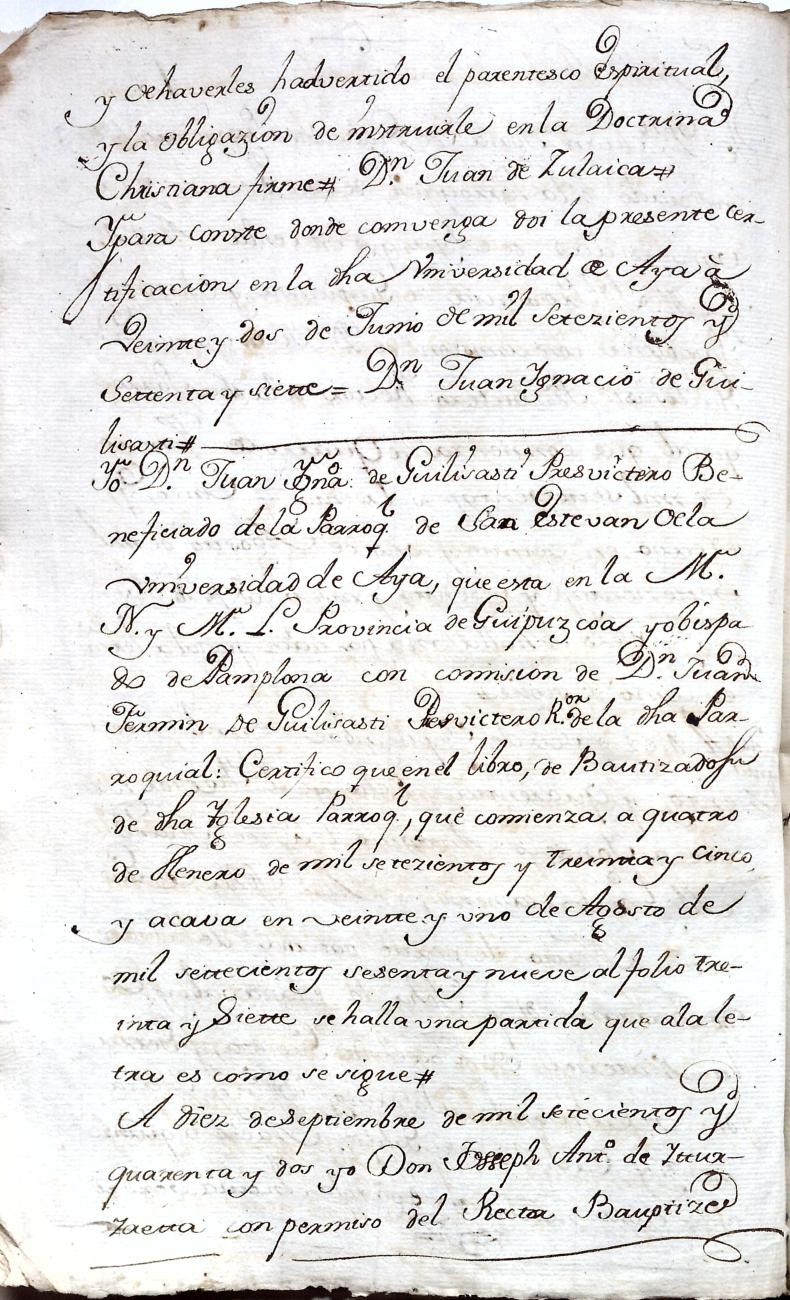 y de haverles hadvertido el parentesco Espiritual,
y la obligazion de instruirle en la Doctrina
Christiana firme# Dn. Juan de Zulaica#
Ypara conste donde comvenga doi la presente cer-
tificacion en la dha Vniversidad de Aya à
Veintey dos de Junio de mil Setezientos y
Settenta y siette = Dn. Juan Ygnacio de Gui-
lisasti#
Yo Dn. Juan Ygno. de Guilisasti Presvictero Be-
neficiado de la Parroql. de San Estevan de la
Vniversidad de Aya, que esta en la M.
N. y M. L. Provincia de Guipuzcoa yobispa-
do de Pamplona con comision de Dn. Juan
Fermin de Guilisasti Presvictero R.or de la dha Par-
roquial: Certifico que en el libro, de Bautizados
de dha Yglesia Parroql, que comienza a quatro
de Henero de mil setezientos y treinta y Cinco,
y acava en veintte y vno de Agosto de
mil settecientos sesenta y nueve al folio tre-
inta y Siette se halla vna partida que ala le-
tra es como se sigue#
A diez de Septiembre de mil setecientos y
quarenta y dos yo Don Joseph Anto. de Ytur-
zaetta con permiso del Rector Bauptize